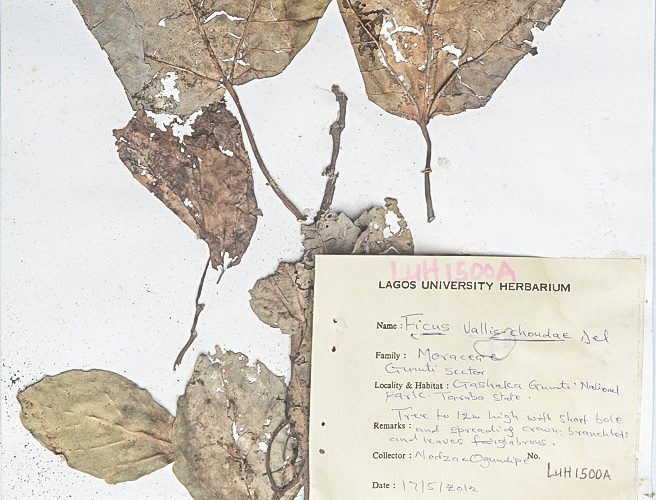 LUH1500A
LAGOS UNIVERSITY HERBARIUM
Name : Ficus Vallis-choudae Del
Family : Moraceae
Gumti sector
Locality & Habitat : Gashaka Gumti National
park. Taraba State.
Tree to 12m high with short bole
Remarks : and spreading crown; branchlets
and leaves
Collector : Nodza & Ogundipe No.
LUH1500A
Date : 17/5/2012